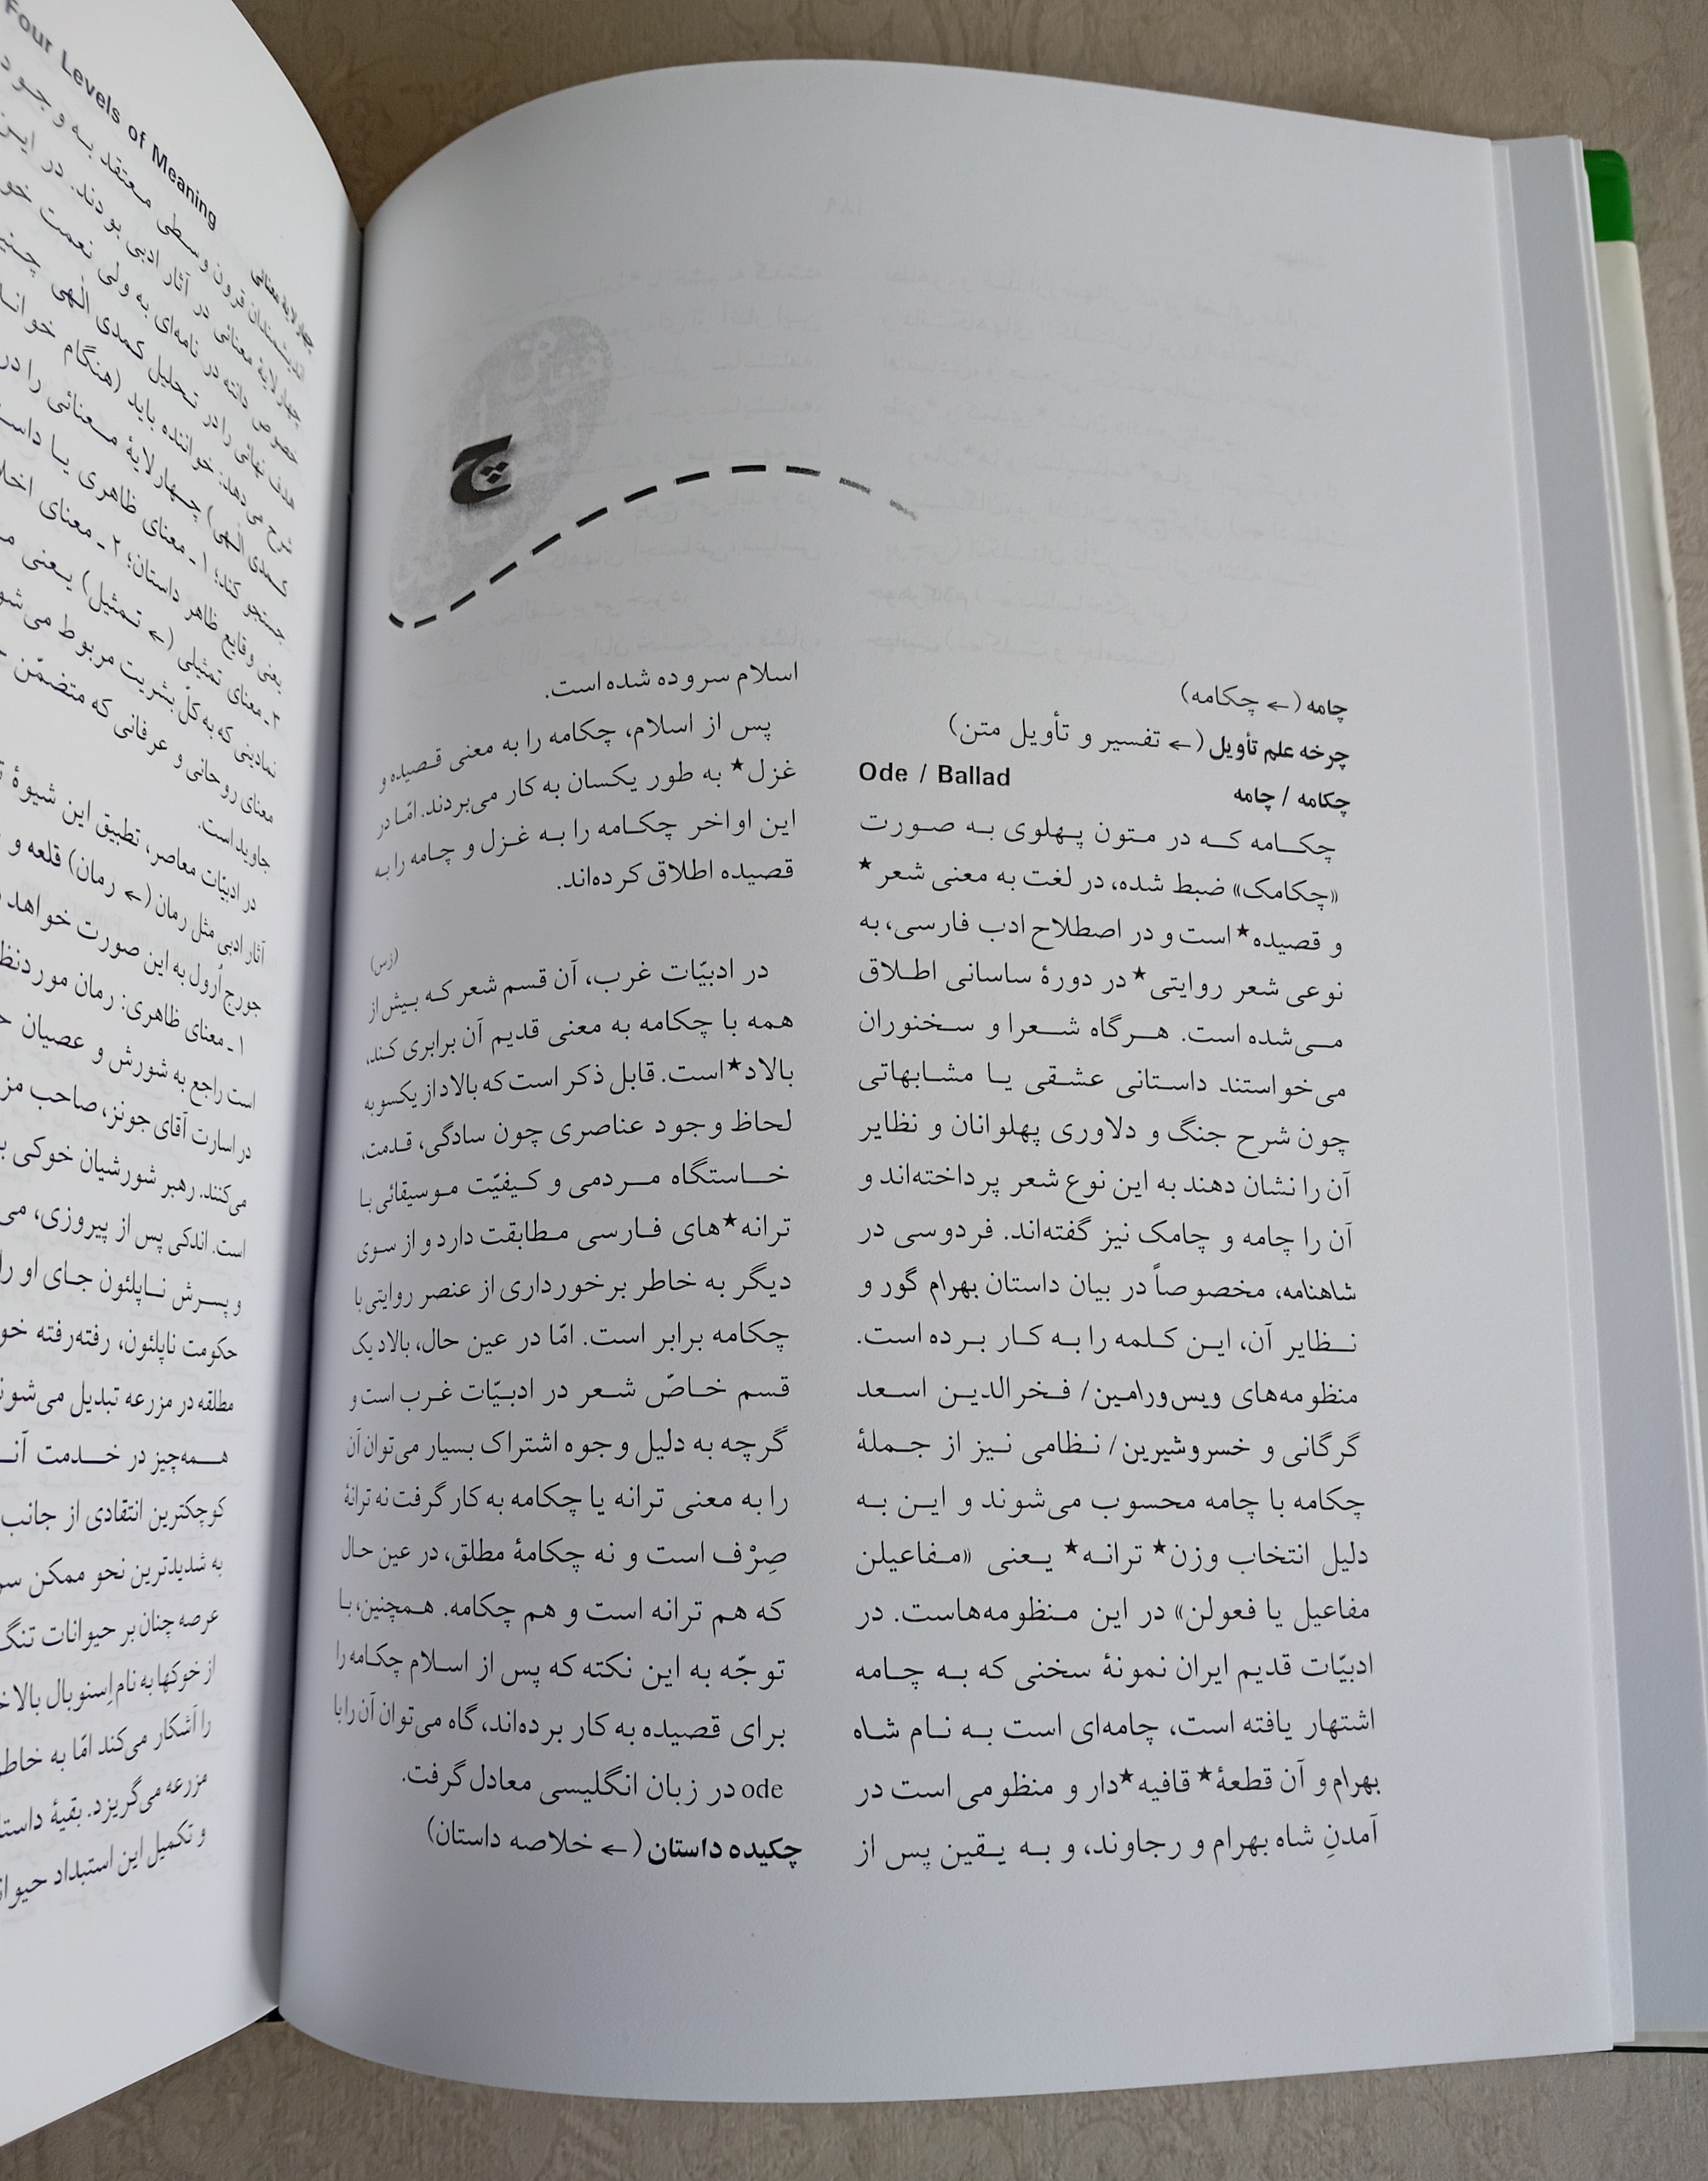 چ
چامه (← چکامه)
چرخه علم تأویل (← تفسیر و تأویل متن)
چکامه / چامه Ode / Ballad
چکامه که در متون پهلوی به صورت
«چکامک» ضبط شده، در لغت به معنی شعر*
و قصیده* است و در اصطلاح ادب فارسی، به
نوعی شعر روایتی* در دورهٔ ساسانی اطلاق
می‌شده است. هرگاه شعرا و سخنوران
می‌خواستند داستانی عشقی یا مشابهاتی
چون شرح جنگ و دلاوری پهلوانان و نظایر
آن را نشان دهند به این نوع شعر پرداخته‌اند و
آن را چامه و چامک نیز گفته‌اند. فردوسی در
شاهنامه، مخصوصاً در بیان داستان بهرام گور و
نظایر آن، این کلمه را به کار برده است.
منظومه‌های ویس‌ورامین/ فخرالدین اسعد
گرگانی و خسروشیرین/ نظامی نیز از جملهٔ
چکامه با چامه محسوب می‌شوند و این به
دلیل انتخاب وزن* ترانه* یعنی «مفاعیلن
مفاعیل یا فعولن» در این منظومه‌هاست. در
ادبیّات قدیم ایران نمونهٔ سخنی که به چامه
اشتهار یافته است، چامه‌ای است به نام شاه
بهرام و آن قطعهٔ* قافیه*دار و منظومی است در
آمدنِ شاه بهرام و رجاوند، و به یقین پس از
اسلام سروده شده است.
پس از اسلام، چکامه را به معنی قصیده و
غزل* به طور یکسان به کار می‌بردند. امّا در
این اواخر چکامه را به غزل و چامه را به
قصیده اطلاق کرده‌اند.
(زس)
در ادبیّات غرب، آن قسم شعر که بیش از
همه با چکامه به معنی قدیم آن برابری کند،
بالاد* است. قابل ذکر است که بالاد از یکسو به
لحاظ وجود عناصری چون سادگی، قدمت،
خاستگاه مردمی و کیفیّت موسیقائی با
ترانه*های فارسی مطابقت دارد و از سوی
دیگر به خاطر برخورداری از عنصر روایتی با
چکامه برابر است. امّا در عین حال، بالاد یک
قسم خاصّ شعر در ادبیّات غرب است و
گرچه به دلیل وجوه اشتراک بسیار می‌توان آن
را به معنی ترانه یا چکامه به کار گرفت نه ترانهٔ
صِرْف است و نه چکامهٔ مطلق، در عین حال
که هم ترانه است و هم چکامه. همچنین، با
توجّه به این نکته که پس از اسلام چکامه را
برای قصیده به کار برده‌اند، گاه می‌توان آن را با
ode در زبان انگلیسی معادل گرفت.
چکیده داستان (← خلاصه داستان)
Four Levels of Meaning
چهارلایهٔ معنائی
اندیشمندان قرون وسطی معتقد به وجود
چهارلایهٔ معنائی در آثار ادبی بودند. در این
خصوص دانته در نامه‌ای به ولی نعمت
هدف نهائی را در تحلیل کمدی الهی
شرح می‌دهد: خواننده باید (هنگام
کمدی الهی) چهارلایهٔ معنائی را در
جستجو کند؛ ۱ـ معنای ظاهری یا
یعنی وقایع ظاهر داستان؛ ۲ـ معنای
۳ـ معنای تمثیلی (← تمثیل) یعنی
نمادینی که به کلّ بشریت مربوط
معنای روحانی و عرفانی که متضمّن
جاوید است.
در ادبیّات معاصر، تطبیق این شیوهٔ
آثار ادبی مثل رمان (← رمان) قلعه و
جورج اُرول به این صورت خواهد
۱ـ معنای ظاهری: رمان
است راجع به شورش و عصیان
در اسارت آقای جونز، صاحب
می‌کنند. رهبر شورشیان خوکی
است. اندکی پس از پیروزی،
و پسرش ناپلئون جای او را
حکومت ناپلئون، رفته‌رفته
مطلقه در مزرعه تبدیل
همه‌چیز در خدمت
کوچکترین انتقادی از جانب
به شدیدترین نحو ممکن
عرصه چنان بر حیوانات تنگ
از خوکها به نام اِسنوبال
را آشکار می‌کند امّا به
مزرعه می‌گریزد. بقیهٔ
و تکمیل این استبداد